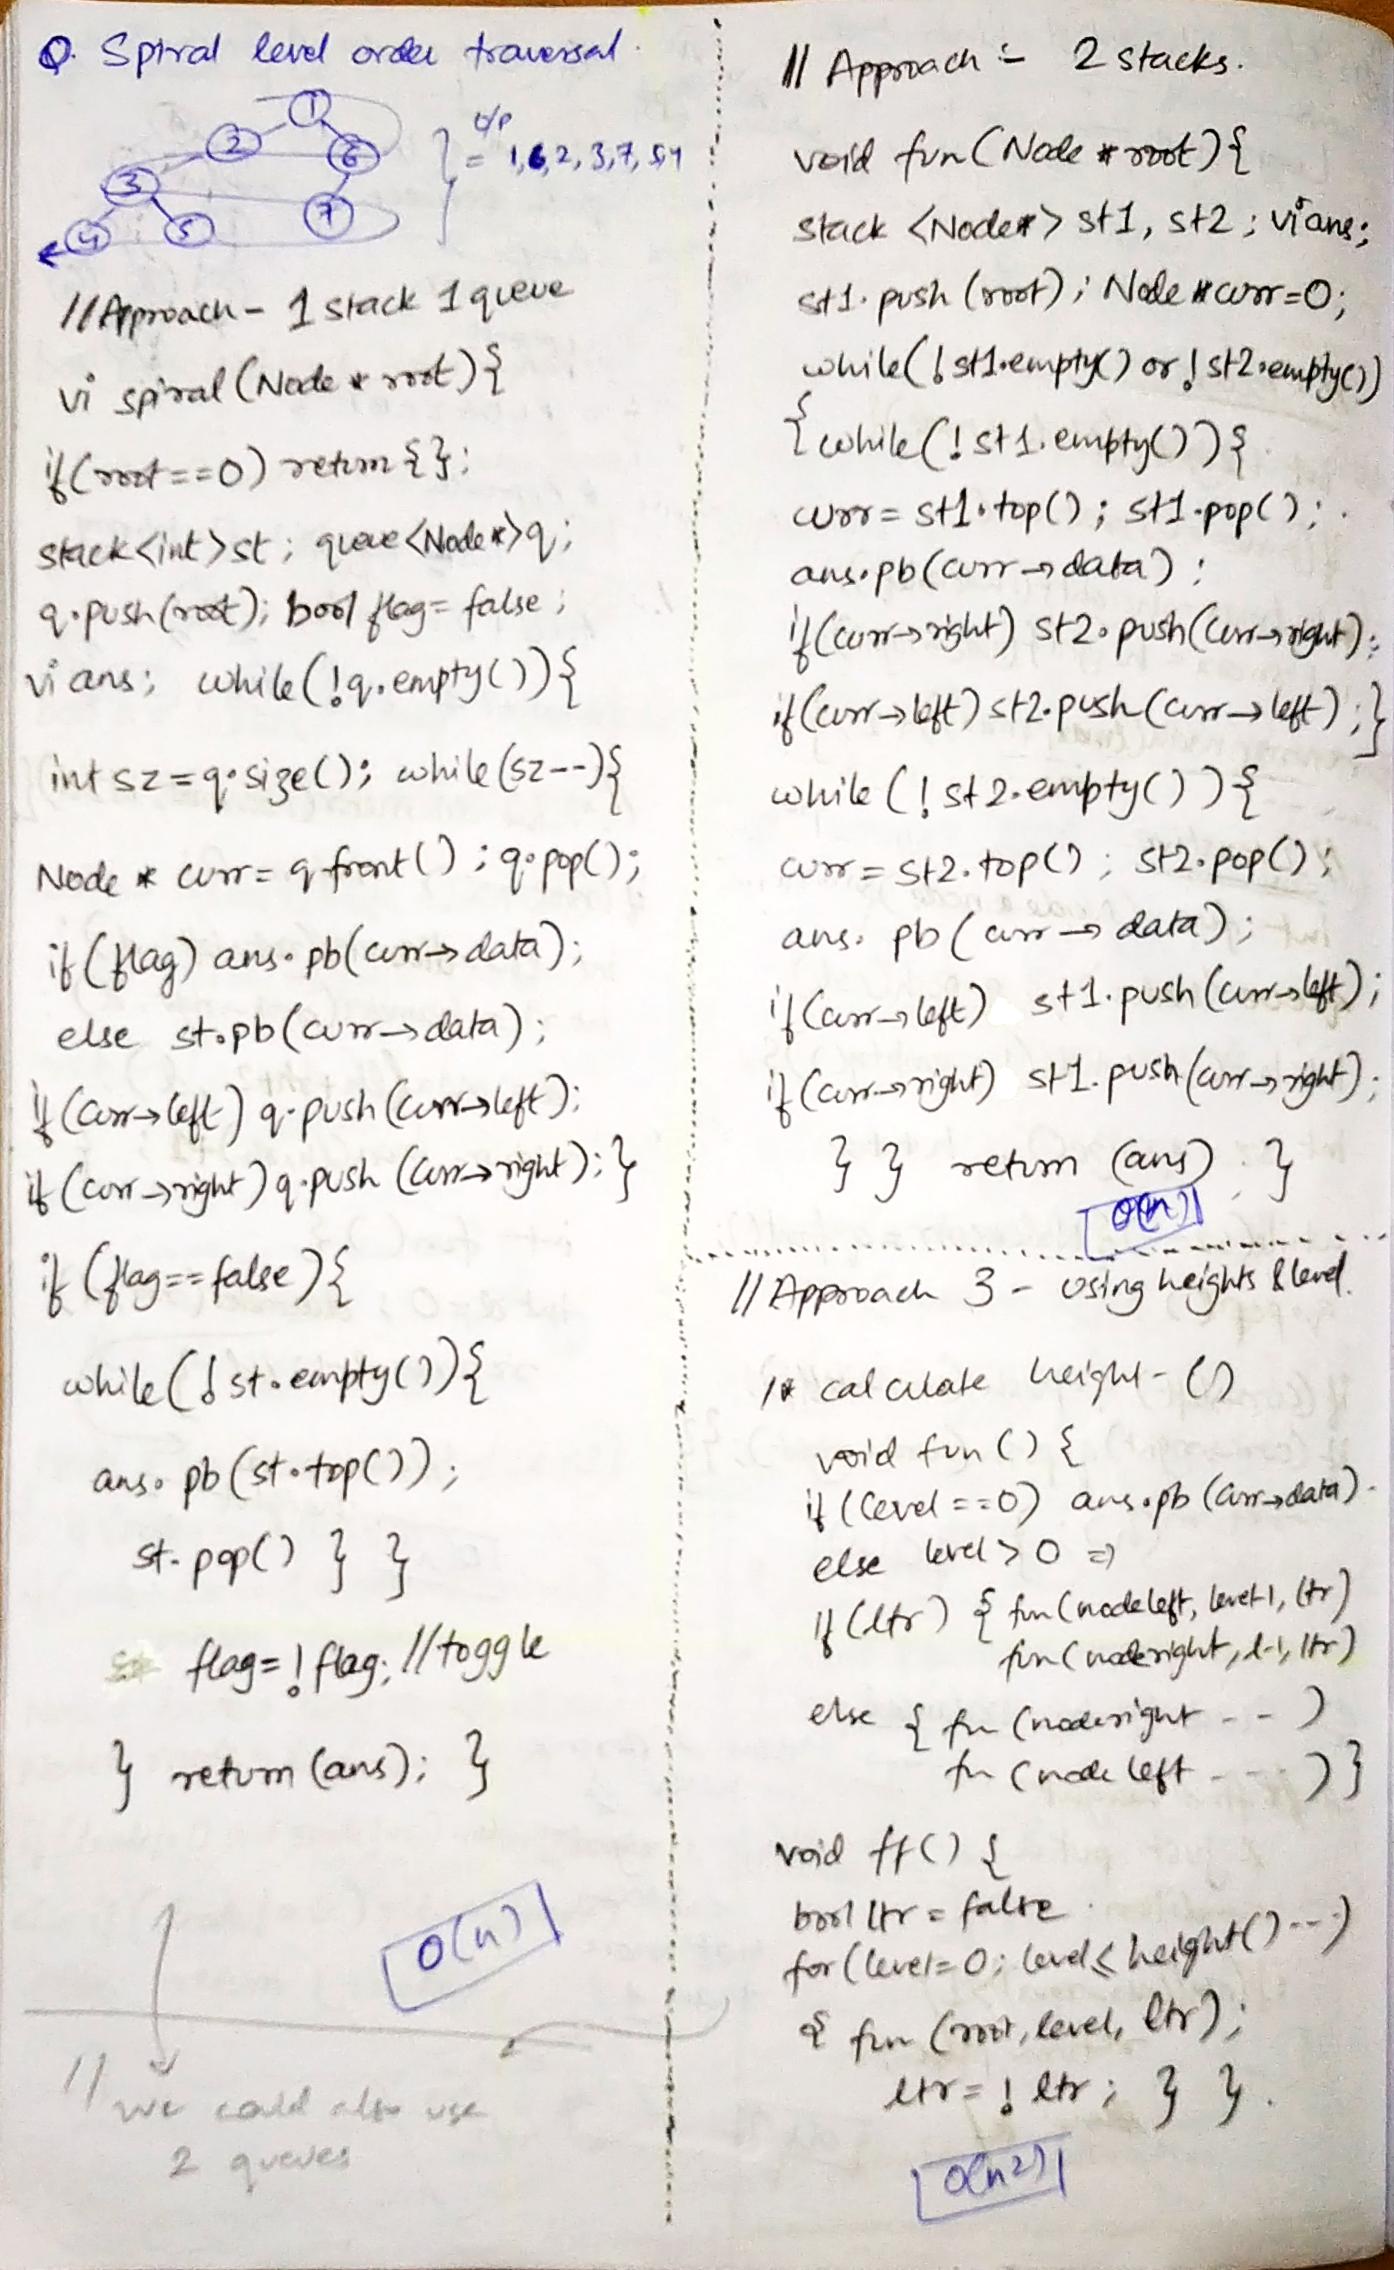 Q. Spiral level order traversal.
1
2
6
3
4
5
7
o/p
= 1,6,2,3,7,5,4
//Approach - 1 stack 1 queue
vi spiral (Node * root) {
if (root==0) return {};
stack<int>st; queue<Node*>q;
q.push(root); bool flag = false;
vi ans; while(!q.empty()){
int sz = q.size(); while(sz--){
Node * curr = q.front(); q.pop();
if (flag) ans.pb(curr→data);
else st.pb(curr→data);
if (curr→left) q.push(curr→left);
if (curr→right) q.push(curr→right); }
if (flag==false){
while(!st.empty()){
ans.pb(st.top());
st.pop() } }
flag = !flag; //toggle
} return (ans); }
O(n)
// we could also use
2 queues
// Approach :- 2 stacks.
void fun (Node * root){
stack <Node*> st1, st2 ; vi ans;
st1.push (root); Node * curr=0;
while(!st1.empty() or !st2.empty())
{ while(!st1.empty()){
curr = st1.top(); st1.pop();
ans.pb(curr→data);
if(curr→right) st2.push(curr→right);
if(curr→left) st2.push(curr→left); }
while (!st2.empty()){
curr = st2.top(); st2.pop();
ans.pb(curr→data);
if(curr→left) st1.push(curr→left);
if(curr→right) st1.push(curr→right);
} } return (ans) }
O(n)
// Approach 3 - using heights & level.
/* calculate height - ()
void fun () {
if (level==0) ans.pb(curr→data).
else level > 0 ⇒
if (ltr) { fun (node left, level-1, ltr)
fun (node right, l-1, ltr)
else { fn (node right - - )
fn (node left - - - ) }
void ff() {
bool ltr = false
for (level=0; level ≤ height() ---)
{ fun (root, level, ltr);
ltr = ! ltr ; } }.
O(n2)